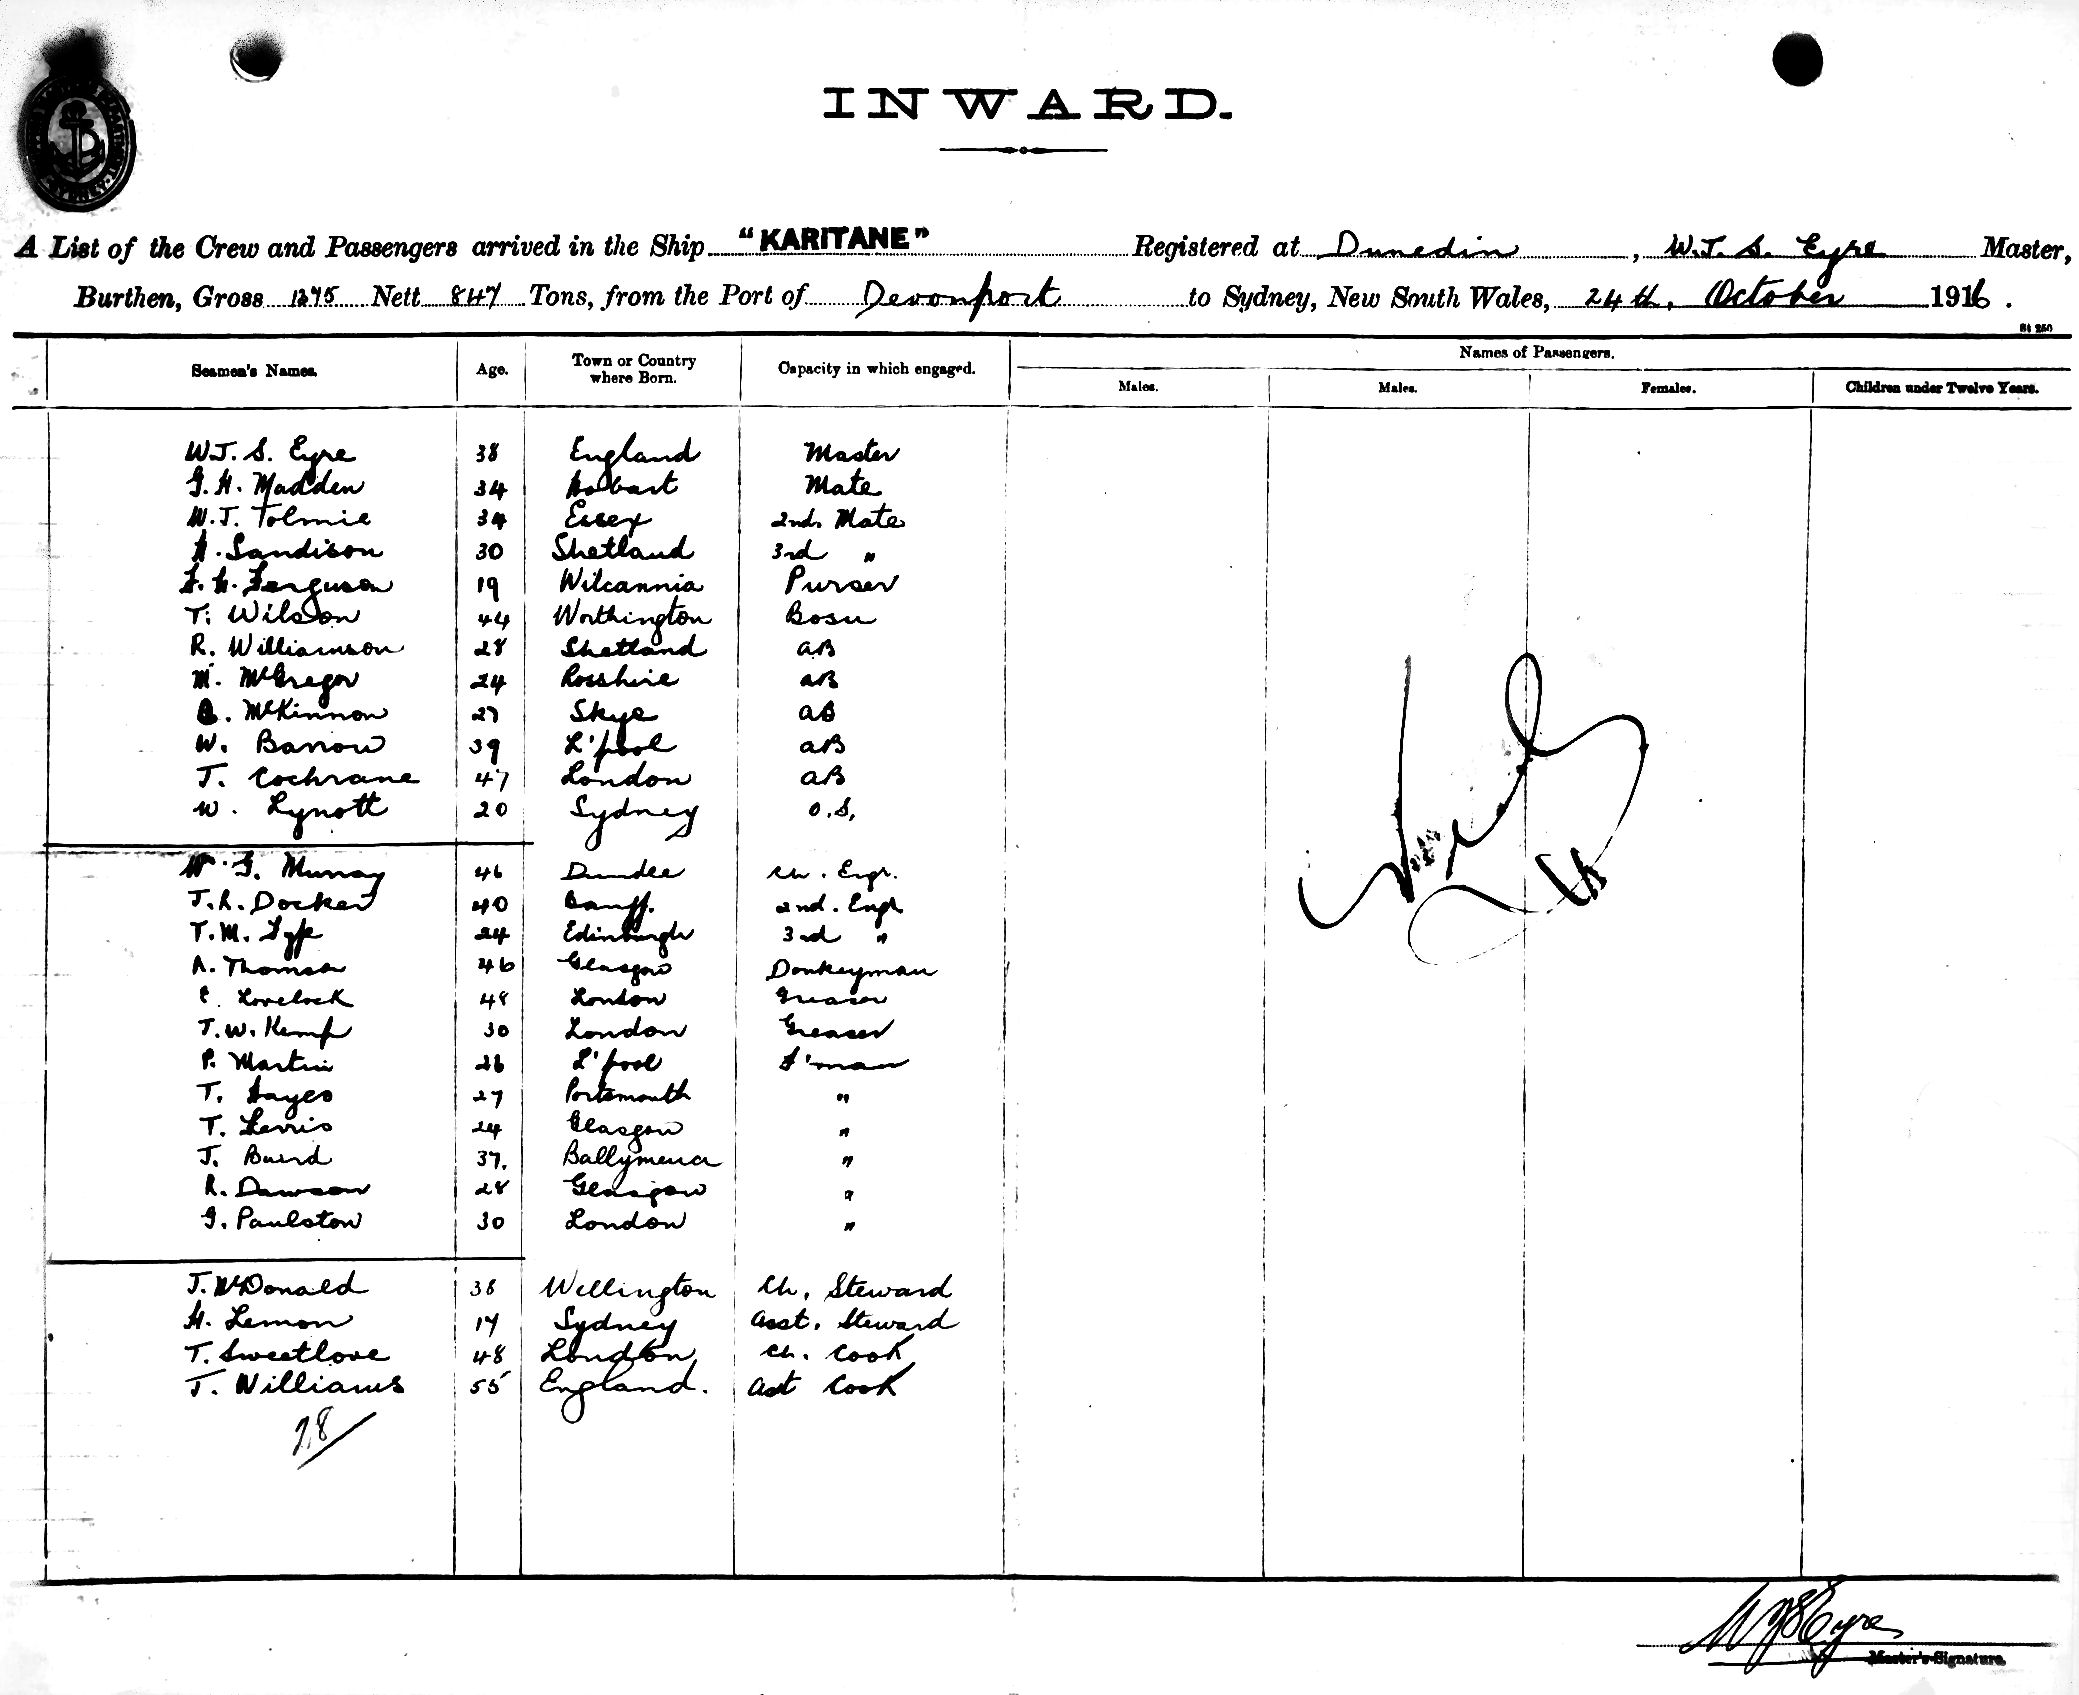 INWARD.
A List of the Crew and Passengers arrived in the Ship "KARITANE" Registered at Dunedin, W.J.S. Eyre Master,
Burthen, Gross 1275 Nett 847 Tons, from the Port of Devonport to Sydney, New South Wales, 24th. October 1916.
Names of Passengers.
Seamen's Names. Age. Town or Country where Born. Capacity in which engaged. Males. Males. Females. Children under Twelve Years.
W.J.S. Eyre 38 England Master
G.H. Madden 34 Hobart Mate
W.J. Tolmie 34 Essex 2nd. Mate
A. Sandison 30 Shetland 3rd "
Ferguson 19 Wilcannia Purser
T. Wilson 44 Worthington Bosn
R. Williamson 28 Shetland AB
M. McGregor 24 Rosshire AB
McKinnon 27 Skye AB
W. Barrow 39 L'pool AB
J. Cochrane 47 London AB
W. Lynott 20 Sydney O.S.
W.G. Murray 46 Dundee Ch. Engr.
J.R. Docker 40 Banff. 2nd. Engr
T.M. Fyfe 24 Edinburgh 3rd "
A. Thomson 46 Glasgow Donkeyman
C. Lovelock 48 London Greaser
T.W. Kemp 30 London Greaser
P. Martin 26 L'pool F'man
T. Hayes 27 Portsmouth "
T. Ferris 24 Glasgow "
J. Baird 37. Ballymena "
R. Dawson 28 Glasgow "
G. Paulston 30 London "
J. McDonald 38 Wellington Ch. Steward
H. Lemon 17 Sydney Asst. Steward
T. Sweetlove 48 London Ch. Cook
T. Williams 55 England. Ast Cook
28
WJSEyre
Master's Signature.